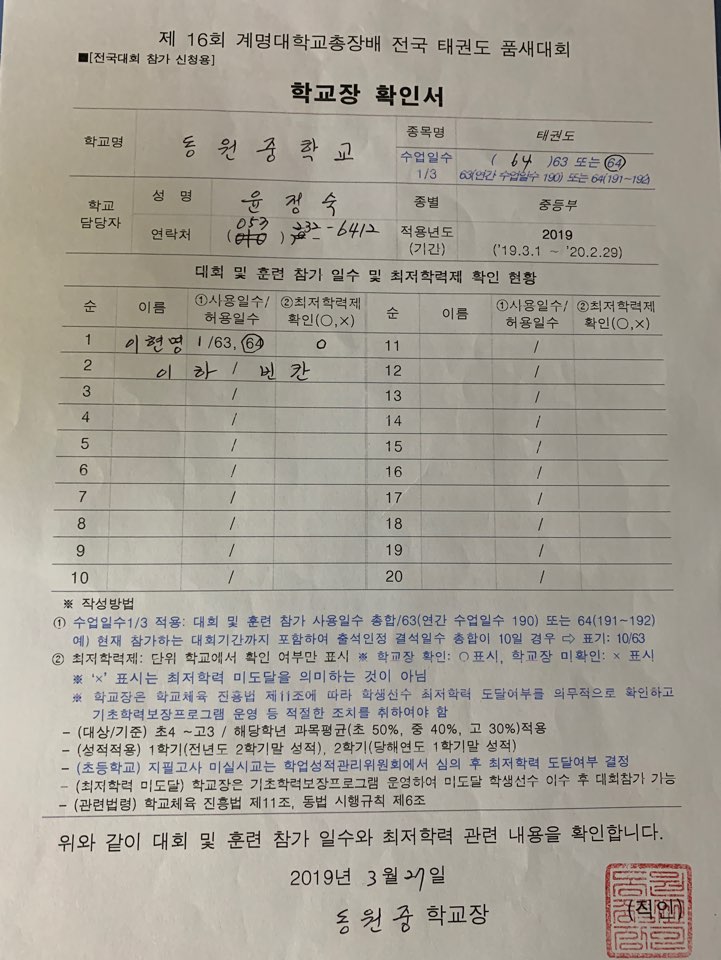 제 16회 계명대학교총장배 전국 태권도 품새대회
■[전국대회 참가 신청용]
학교장 확인서
학교명 동원중학교 종목명 태권도
수업일수 1/3 ( 64 )63 또는 64
63(연간 수업일수 190) 또는 64(191~192)
학교 담당자 성 명 윤정숙 종별 중등부
연락처 (053) 232-6412 적용년도 (기간) 2019 ('19.3.1 ~ '20.2.29)
대회 및 훈련 참가 일수 및 최저학력제 확인 현황
순 이름 ①사용일수/허용일수 ②최저학력제 확인(○,×) 순 이름 ①사용일수/허용일수 ②최저학력제 확인(○,×)
1 이현명 1/63, 64 ○ 11 /
2 이하 / 빈칸 12 /
3 / 13 /
4 / 14 /
5 / 15 /
6 / 16 /
7 / 17 /
8 / 18 /
9 / 19 /
10 / 20 /
※ 작성방법
① 수업일수1/3 적용: 대회 및 훈련 참가 사용일수 총합/63(연간 수업일수 190) 또는 64(191~192)
예) 현재 참가하는 대회기간까지 포함하여 출석인정 결석일수 총합이 10일 경우 ⇨ 표기: 10/63
② 최저학력제: 단위 학교에서 확인 여부만 표시 ※ 학교장 확인: ○표시, 학교장 미확인: × 표시
※ '×' 표시는 최저학력 미도달을 의미하는 것이 아님
※ 학교장은 학교체육 진흥법 제11조에 따라 학생선수 최저학력 도달여부를 의무적으로 확인하고
기초학력보장프로그램 운영 등 적절한 조치를 취하여야 함
- (대상/기준) 초4 ~고3 / 해당학년 과목평균(초 50%, 중 40%, 고 30%)적용
- (성적적용) 1학기(전년도 2학기말 성적), 2학기(당해연도 1학기말 성적)
- (초등학교) 지필고사 미실시교는 학업성적관리위원회에서 심의 후 최저학력 도달여부 결정
- (최저학력 미도달) 학교장은 기초학력보장프로그램 운영하여 미도달 학생선수 이수 후 대회참가 가능
- (관련법령) 학교체육 진흥법 제11조, 동법 시행규칙 제6조
위와 같이 대회 및 훈련 참가 일수와 최저학력 관련 내용을 확인합니다.
2019년 3월 27일
동원중 학교장 (직인)